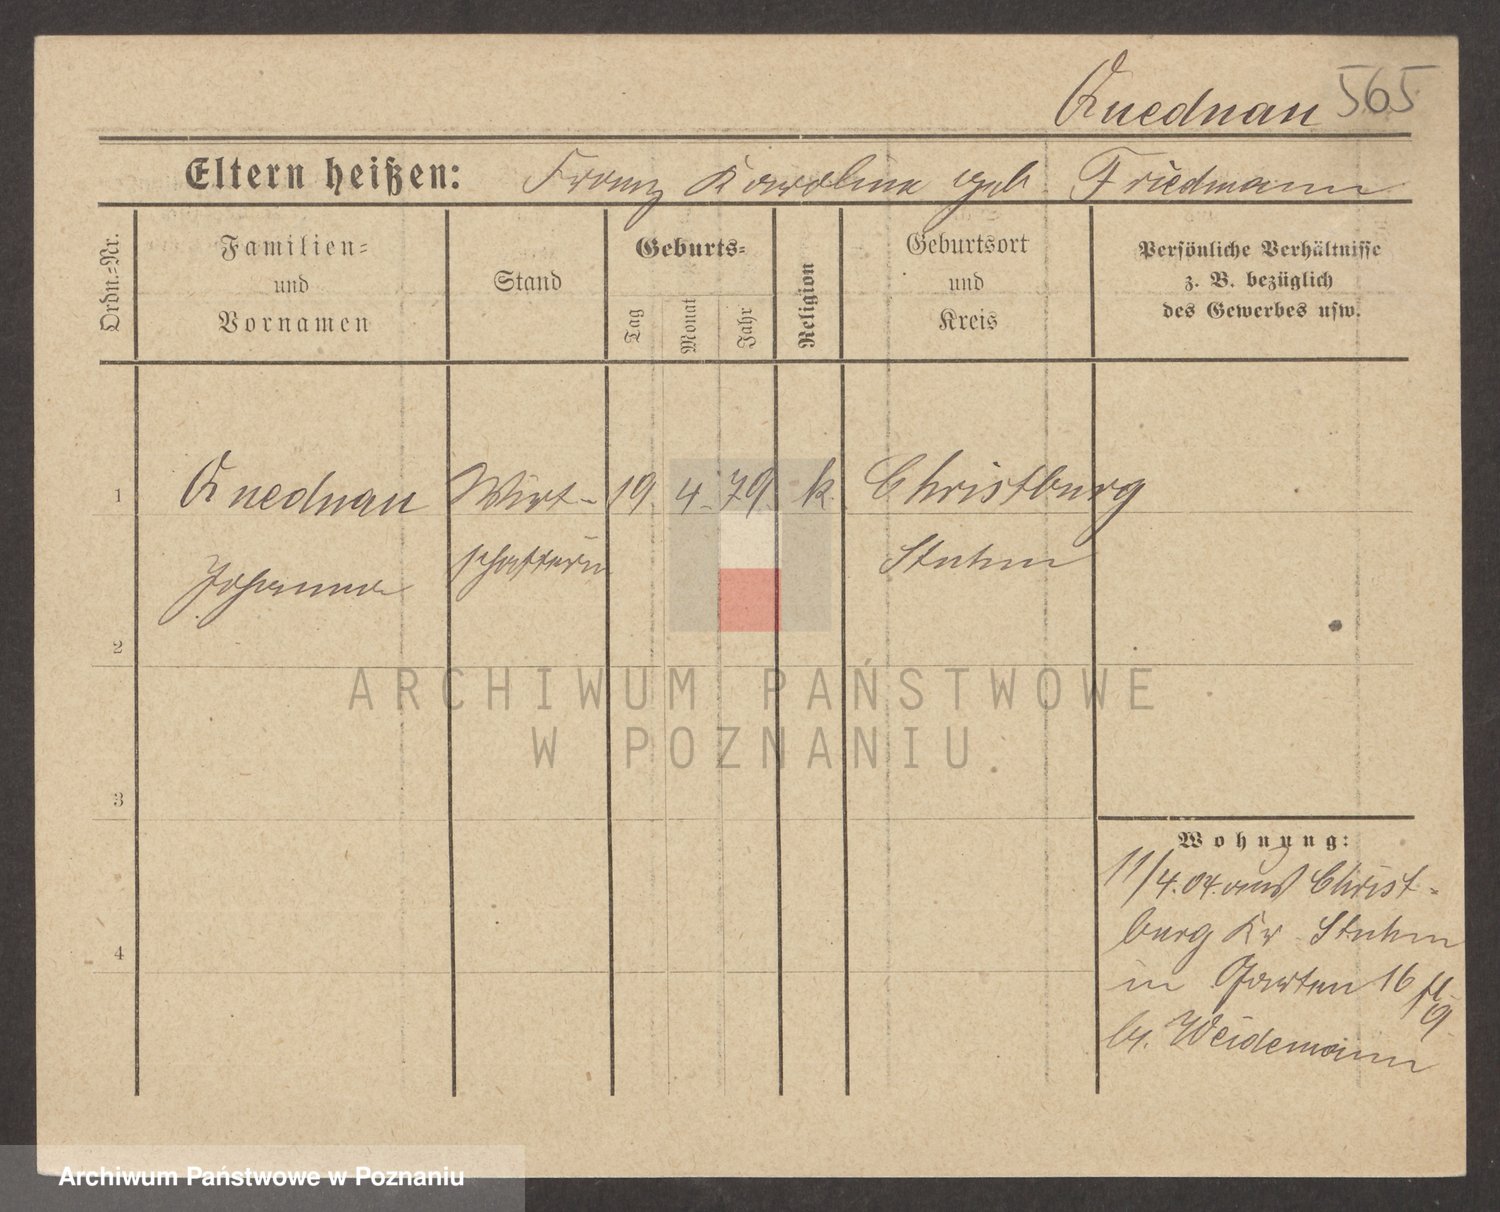 Quednau 565
Eltern heißen: Franz Karoline geb. Friedmann
Ordn.=Nr.
Familien=
und
Vornamen
Stand
Geburts=
Tag
Monat
Jahr
Religion
Geburtsort
und
Kreis
Persönliche Verhältnisse
z. B. bezüglich
des Gewerbes usw.
1 Quednau Wirt- 19. 4. 79. k. Christburg
Johanna schafterin Stuhm
2
3
4
Wohnung:
11/4.04. aus Christ-
burg Kr Stuhm
in Garten 16
b. Weidemann
ARCHIWUM PAŃSTWOWE
W POZNANIU
Archiwum Państwowe w Poznaniu